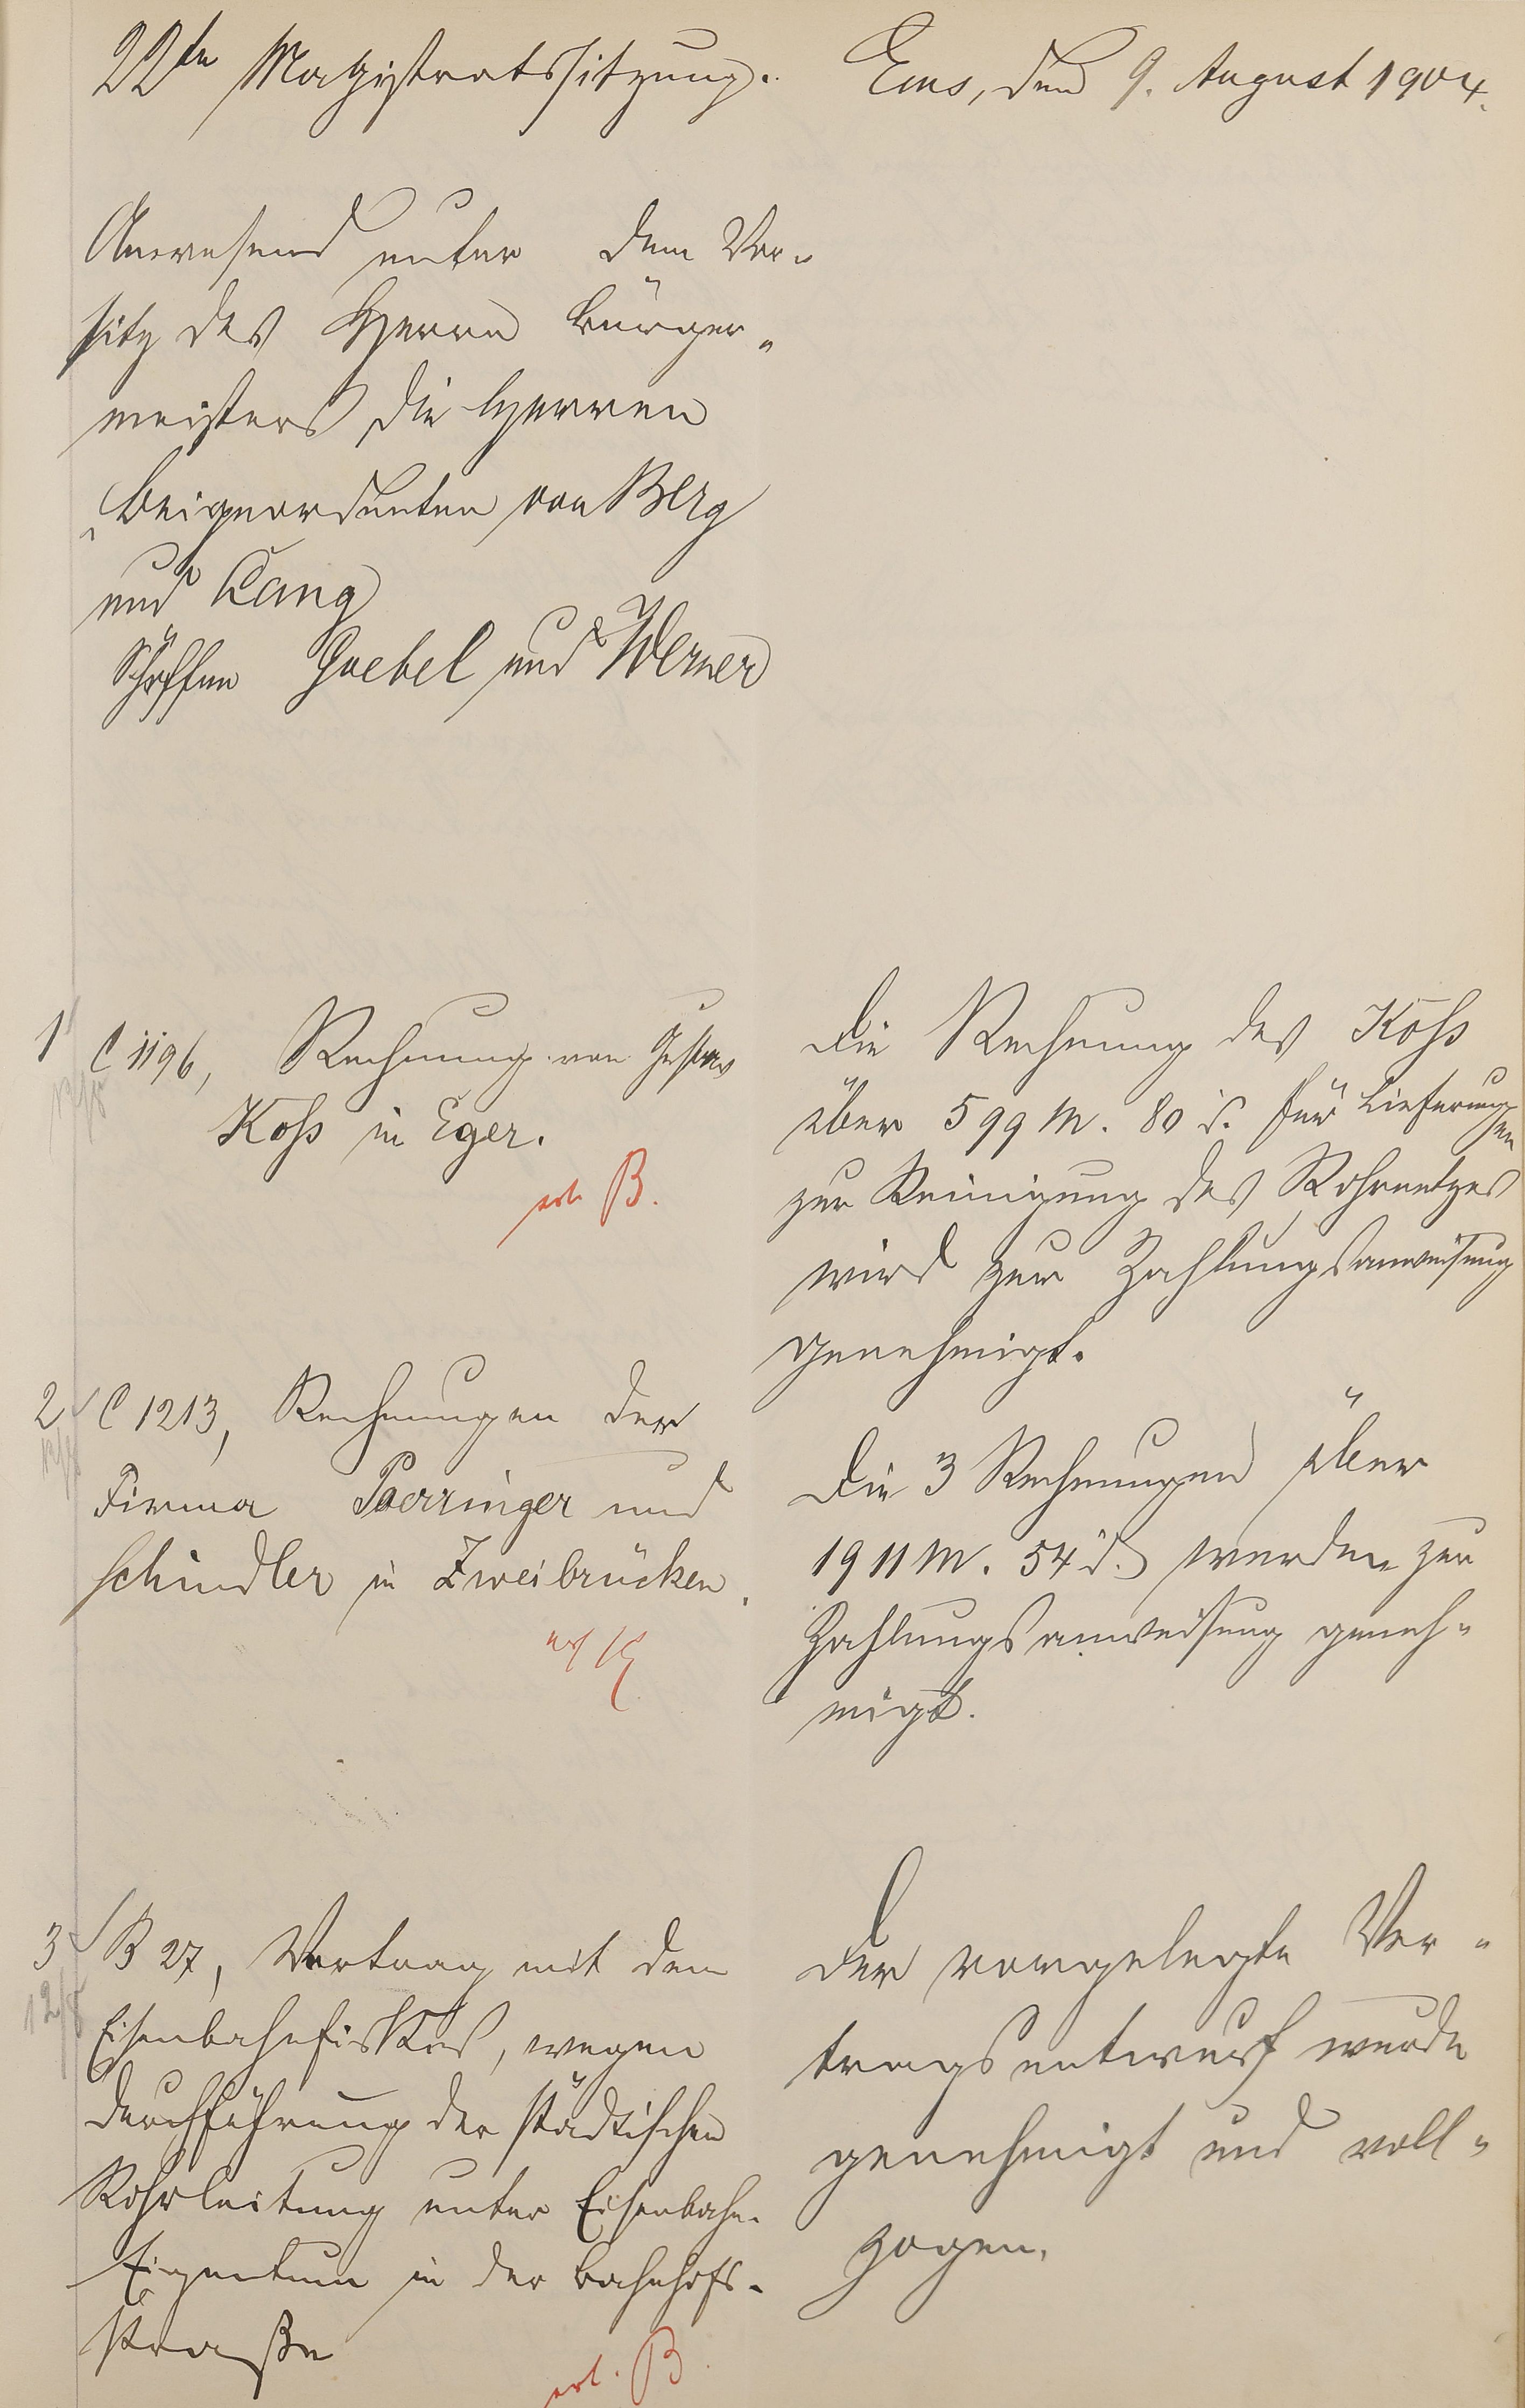 22te Magistratssitzung. Ems, den 9. August 1904.
Anwesend unter dem Vor-
sitz des Herrn Bürger-
meisters die Herren
Beigeordneten von Berg
und Lang
Schöffen Goebel und Werner
1 C 1196, Rechnung von Gustav
12/8
Koss in Eger.
erl. B.
Die Rechnung des Koss
über 599 M. 80 d. für Lieferungen
zur Reinigung des Rohrnetzes
wird zur Zahlungsanweisung
genehmigt.
2 C 1213, Rechnungen der
12/8
Firma Poerringer und
Schindler in Zweibrücken.
Die 3 Rechnungen über
1911 M. 54 d. werden zur
Zahlungsanweisung geneh-
migt.
3 B 27, Vertrag mit dem
12/8
Eisenbahnfiskus, wegen
Durchführung der städtischen
Rohrleitung unter Eisenbahn-
Eigentum in der Bahnhofs-
straße
erl. B.
Der vorgelegte Ver-
tragsentwurf wurde
genehmigt und voll-
zogen.